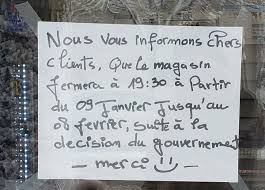 Nous vous informons chers
clients, Que le magasin
fermera à 19:30 à Partir
du 09 Janvier Jusqu'au
08 février, suite à la
decision du gouvernement
— merci —